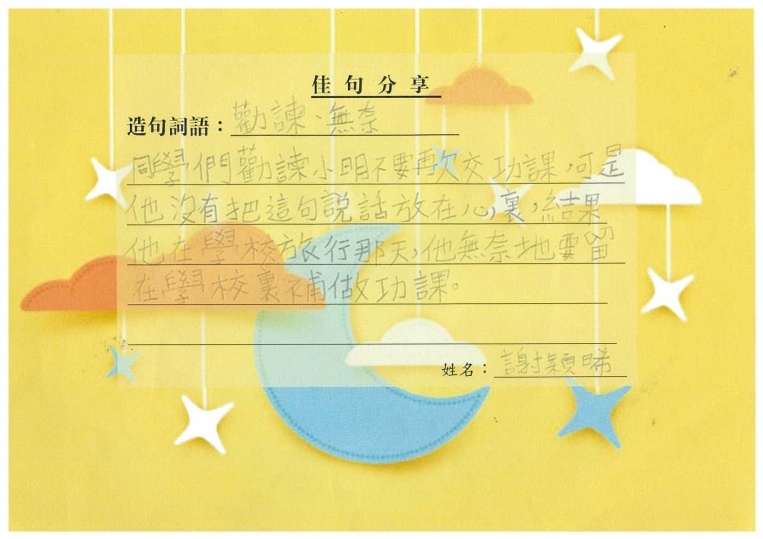 佳句分享
造句詞語：勸諫、無奈
同學們勸諫小明不要再次交功課，可是
他沒有把這句說話放在心裏，結果
他在學校旅行那天，他無奈地要留
在學校裏補做功課。
姓名：謝穎晞